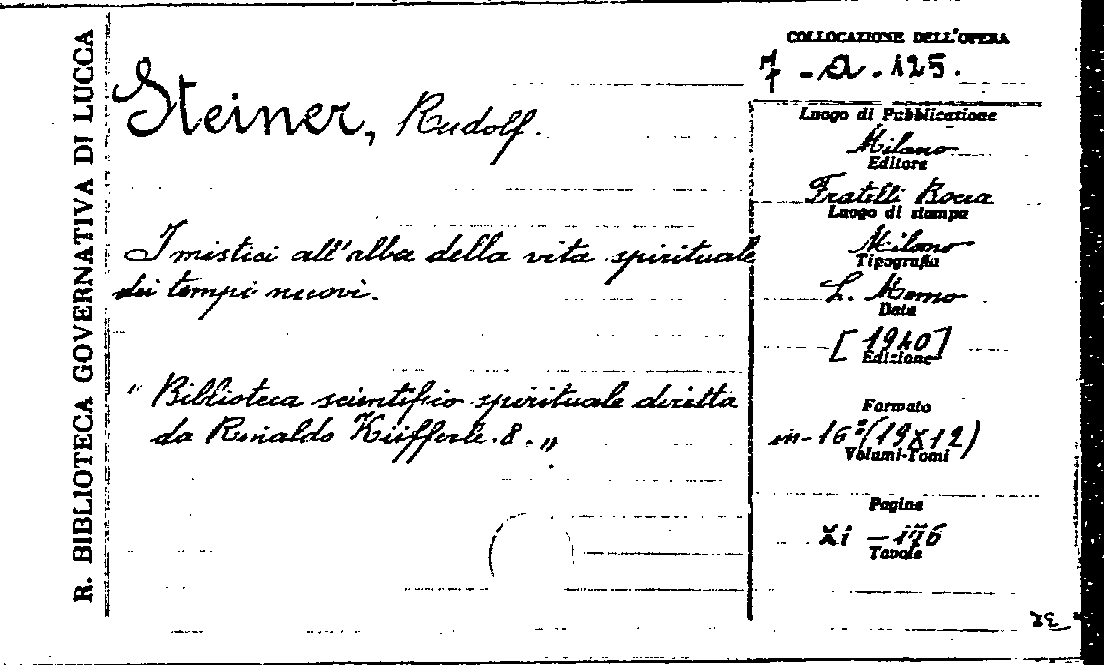 R. BIBLIOTECA GOVERNATIVA DI LUCCA
Steiner, Rudolf.
I mistici all'alba della vita spirituale
dei tempi nuovi.
" Biblioteca scientifico spirituale diretta
da Rinaldo Küfferle. 8. "
COLLOCAZIONE DELL'OPERA
7 - a. 125.
Luogo di Pubblicazione
Milano
Editore
Fratelli Bocca
Luogo di stampa
Milano
Tipografia
L. Memo
Data
[1940]
Edizione
Formato
in-16º (19X12)
Volumi-Tomi
Pagine
XI - 176
Tavole